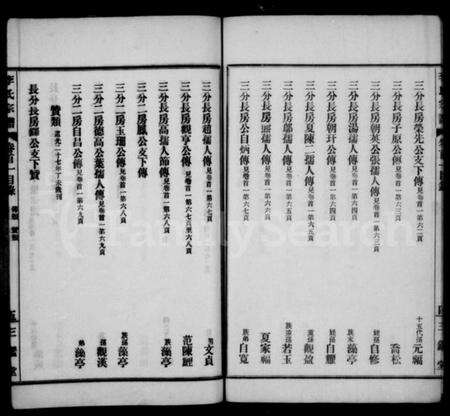 三分長房榮先公支下傳 見卷首一第六二頁 十五代孫元福
三分長房子原公傳 見卷首一第六三頁 喬松
三分長房朝英公張孺人傳 見卷首一第六三頁 姪孫自修
三分長房湯孺人傳 見卷首一第六四頁 族末藻亭
三分長房朝玗公傳 見卷首一第六四頁 姪孫自耀
三分長房夏陳二孺人傳 見卷首一第六五頁 觀瀲
三分長房鄔孺人傳 見卷首一第六五頁 若玉
三分長房熊孺人傳 見卷首一第六六頁 夏家福
三分長房公自炳傳 見卷首一第六六頁 族弟自寬
三分長房趙孺人傳 見卷首一第六七頁 男文貞
三分長房觀亨公傳 見卷首一第六七頁至六八頁 范陳鯉
三分長房高孺人節傳 見卷首一第六八頁 族孫藻亭
三分二房鳳公支下傳
三分二房玉瑠公傳 見卷首一第六八頁 族孫藻亭
三分二房德高公葉孺人傳 見卷首一第六九頁 孫觀溪
三分二房自昌公傳 見卷首一第六九頁 弟藻亭
贊類 道光二十七年丁未發刊
長分長房 公支下贊
李氏宗譜 卷首一目錄 傳類 贊類 三鑑堂